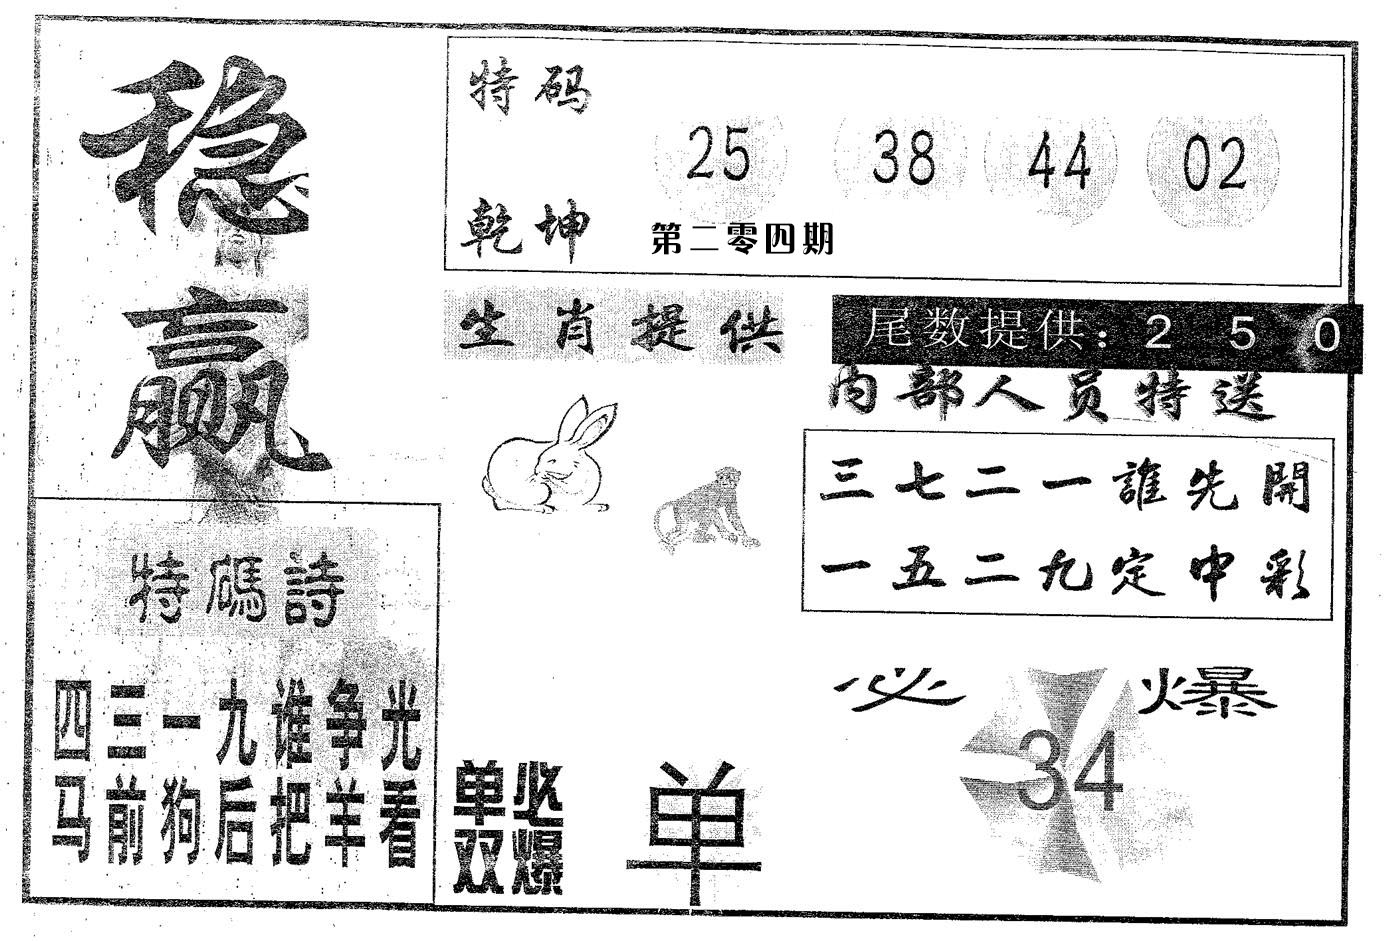 稳
赢
特码
乾坤
25 38 44 02
第二零四期
生肖提供
尾数提供：2 5 0
内部人员特送
三七二一誰先開
一五二九定中彩
特碼詩
四三一九谁争光
马前狗后把羊看
单必
双爆
单
必爆
34